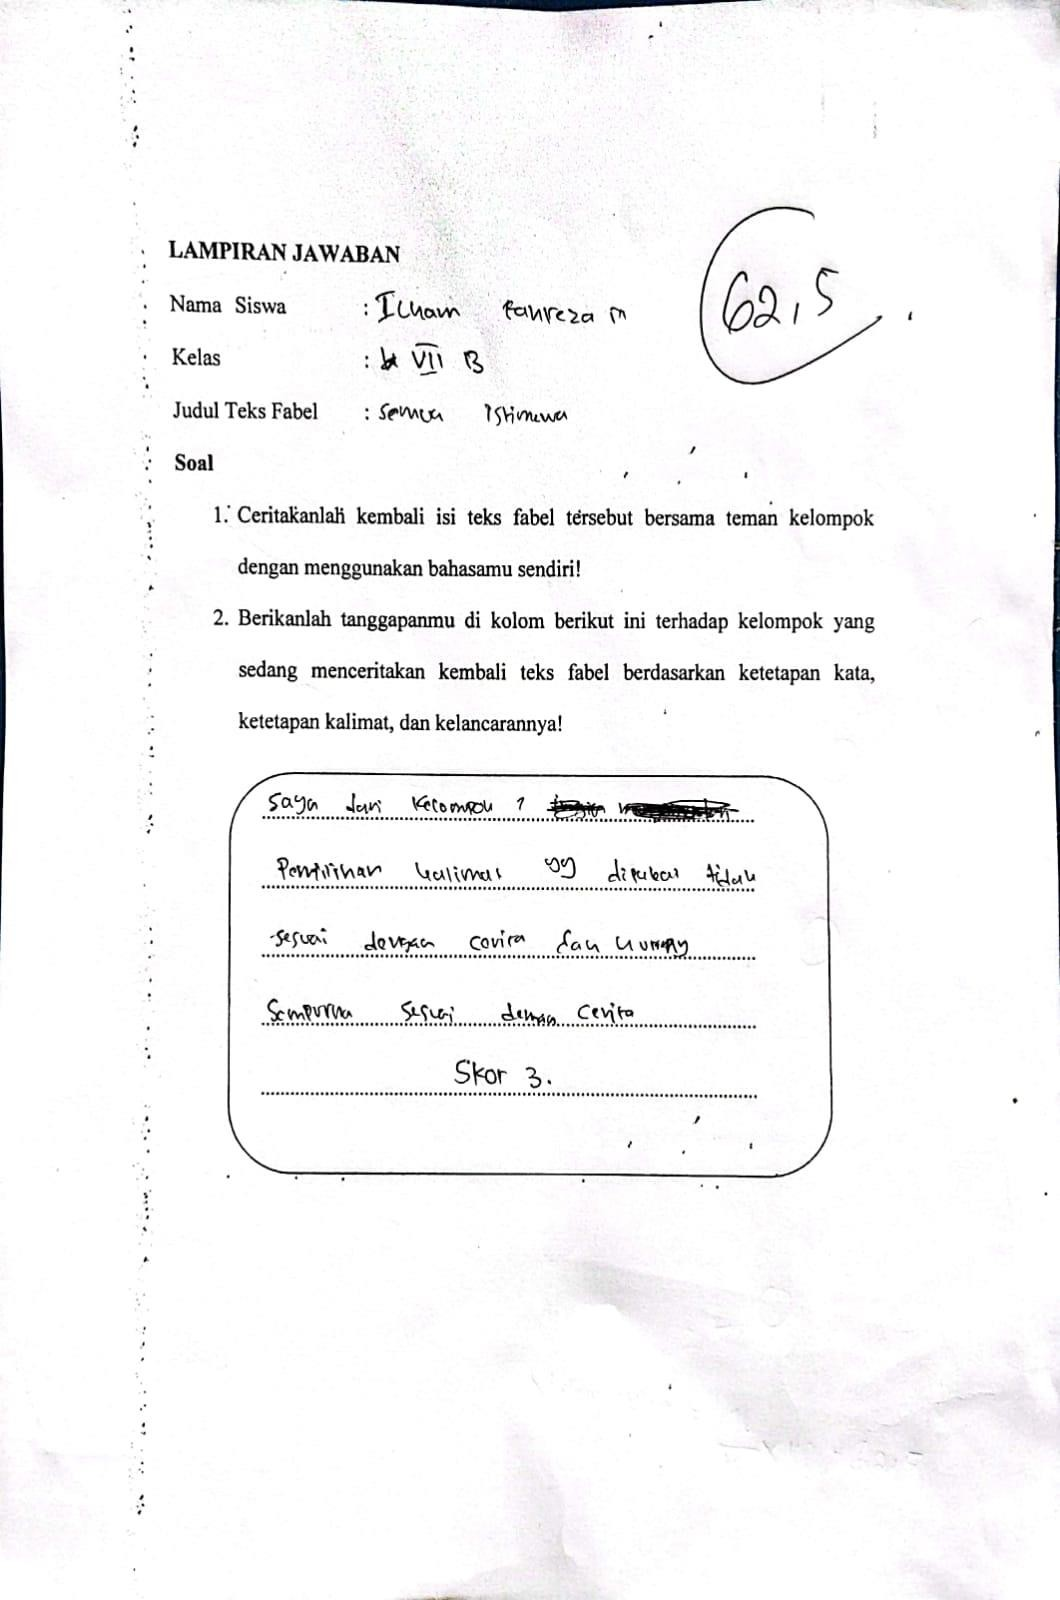 LAMPIRAN JAWABAN
62,5
Nama Siswa : Ilham Fahreza M
Kelas : VII B
Judul Teks Fabel : Semua Istimewa
Soal
1. Ceritakanlah kembali isi teks fabel tersebut bersama teman kelompok
dengan menggunakan bahasamu sendiri!
2. Berikanlah tanggapanmu di kolom berikut ini terhadap kelompok yang
sedang menceritakan kembali teks fabel berdasarkan ketetapan kata,
ketetapan kalimat, dan kelancarannya!
Saya dari Kelompok 1
Pemilihan kalimat yg dipakai tidak
sesuai dengan cerita dan kurang
Sempurna sesuai dengan Cerita
Skor 3.